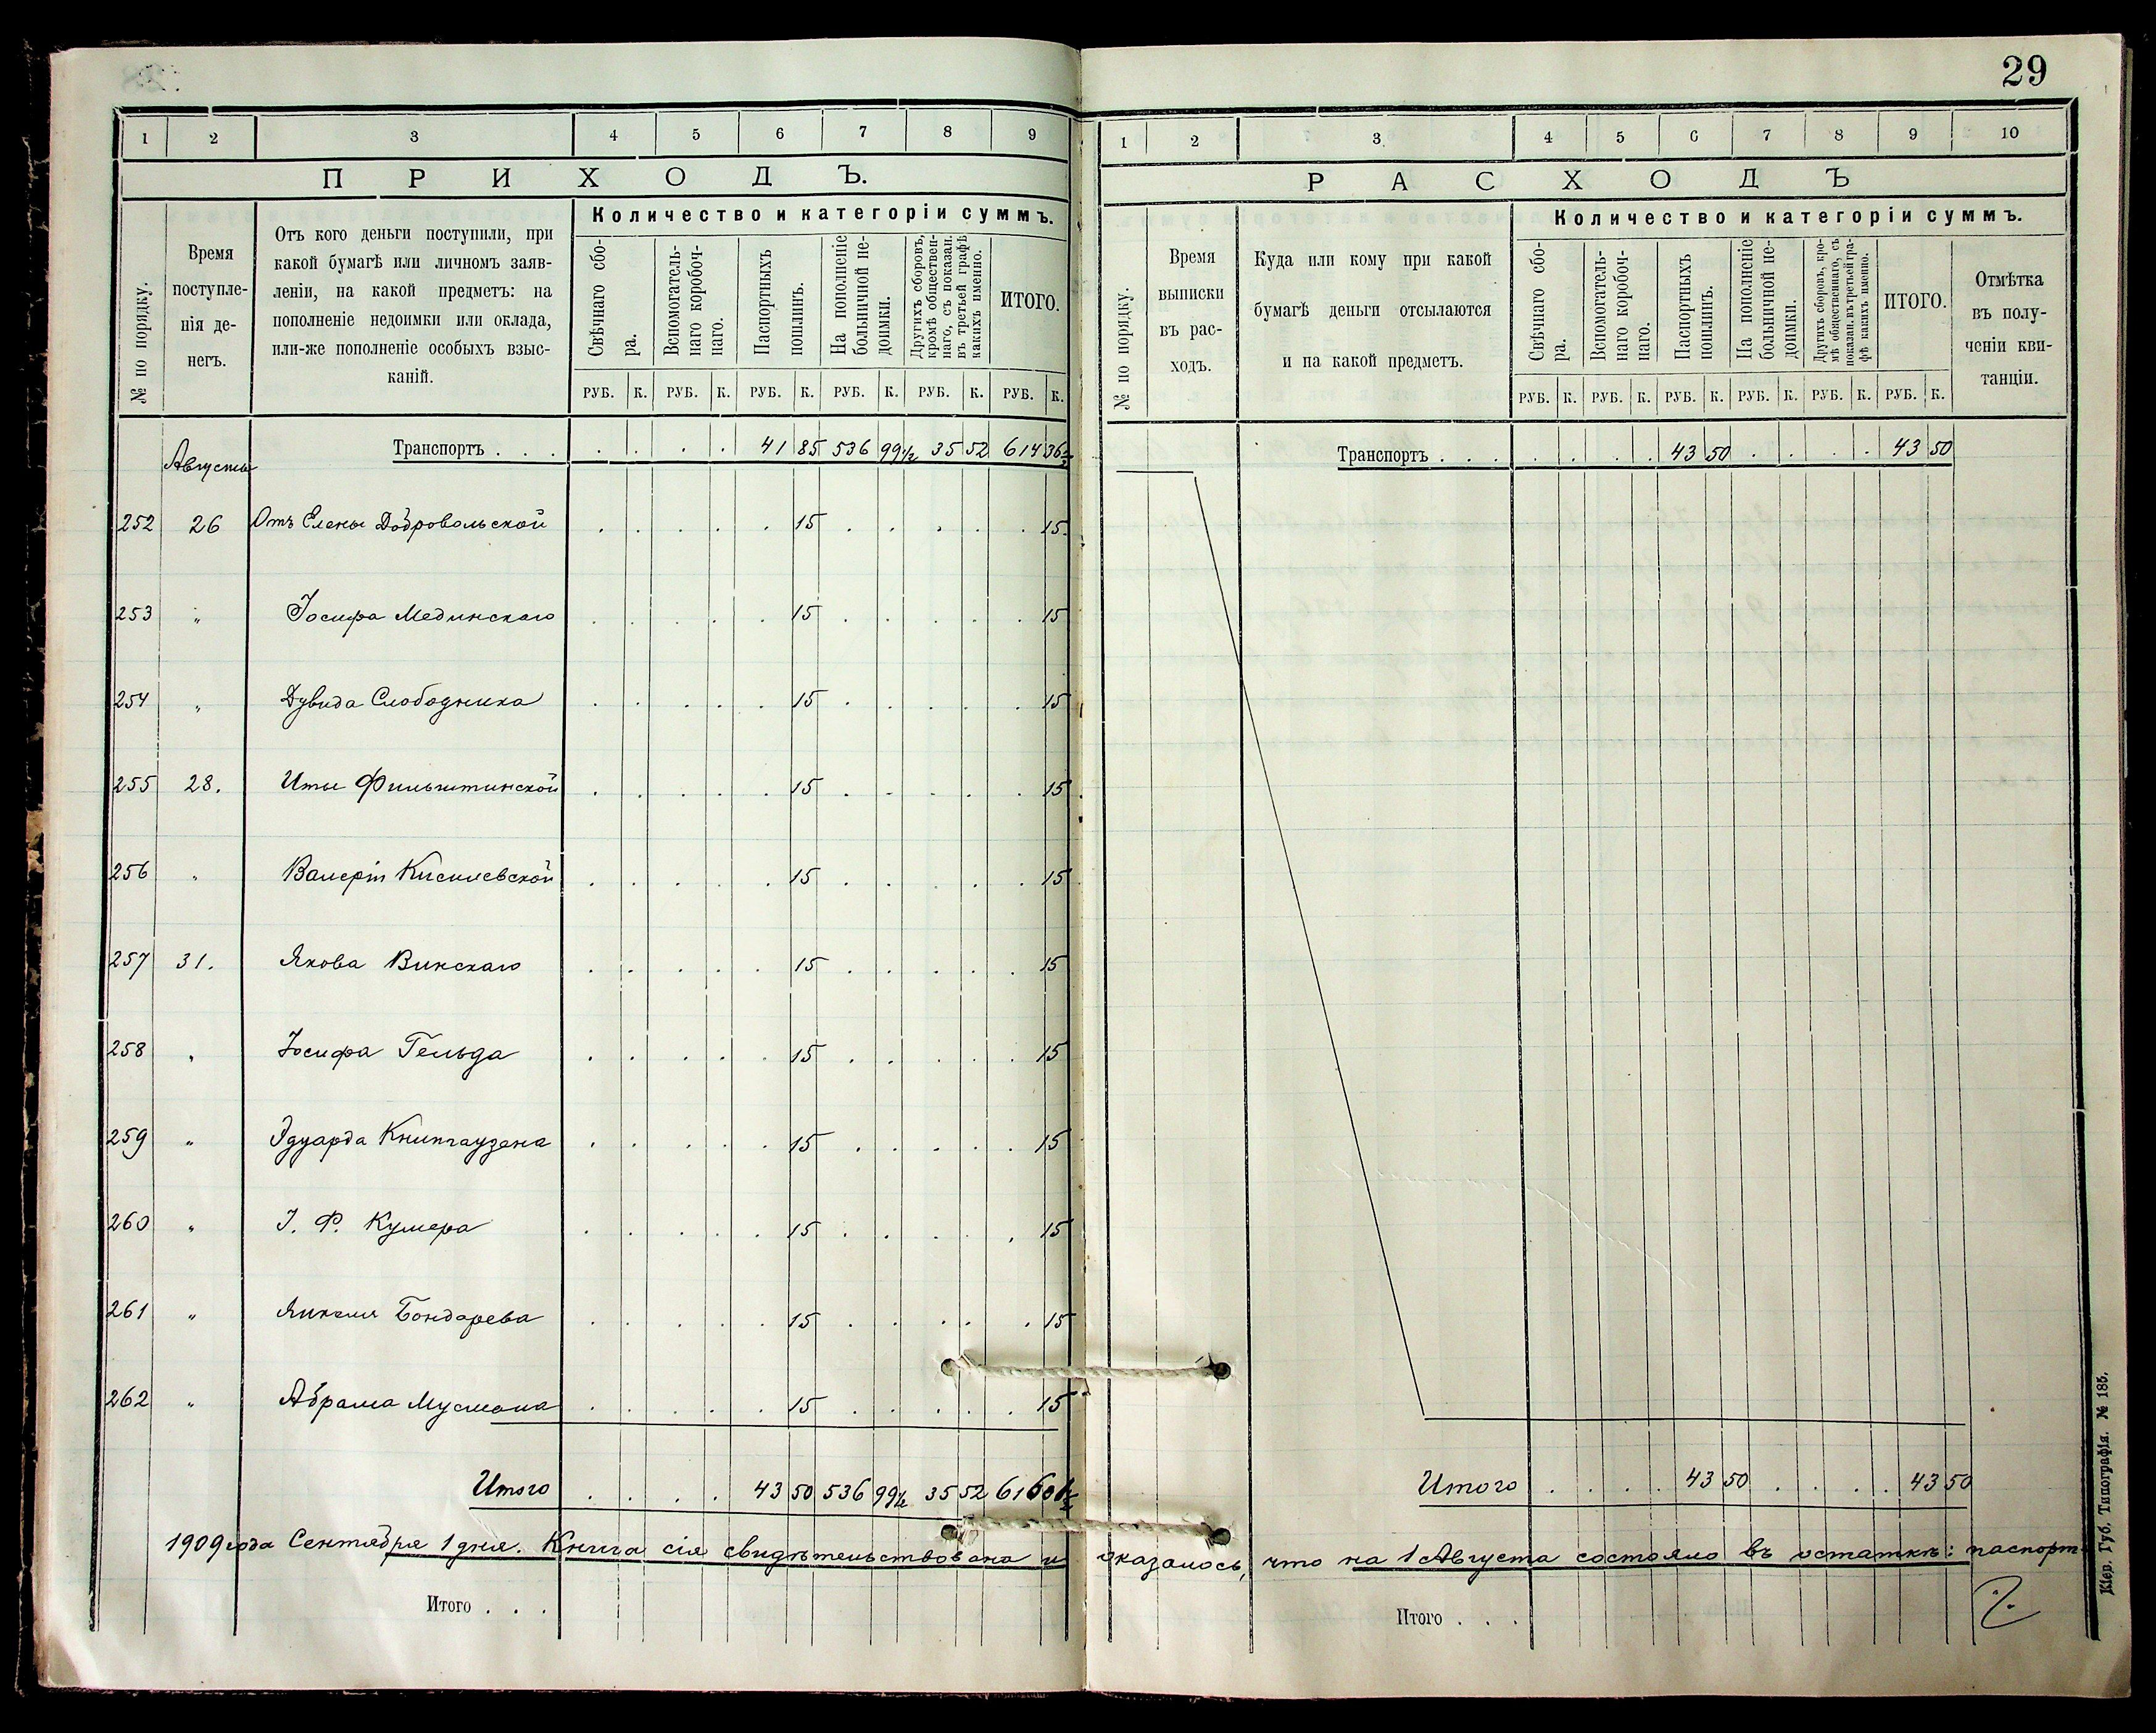 29
1 2 3 4 5 6 7 8 9
ПРИХОДЪ.
№ по порядку.
Время поступле-
нія де-
негъ.
Отъ кого деньги поступили, при
какой бумагѣ или личномъ заяв-
леніи, на какой предметъ: на
пополненіе недоимки или оклада,
или-же пополненіе особыхъ взыс-
каній.
Количество и категоріи суммъ.
Свѣчнаго сбо-
ра.
Вспомогатель-
наго коробоч-
наго.
Паспортныхъ
пошлинъ.
На пополненіе
больничной не-
доимки.
Другихъ сборовъ,
кромѣ обществен-
наго, съ показан.
въ третьей графѣ
какихъ именно.
ИТОГО.
РУБ. К. РУБ. К. РУБ. К. РУБ. К. РУБ. К. РУБ. К.
Августъ
Транспортъ . . . . . . . 41 85 536 99½ 35 52 614 36½
252 26 Отъ Елены Добровольской . . . . . 15 . . . . . 15.
253 " Іосифа Мединскаго . . . . . 15 . . . . . 15
254 " Дувида Слободника . . . . . 15 . . . . . 15
255 28. Иты Фильштинской . . . . . 15 . . . . . 15
256 " Валеріи Кисилевской . . . . . 15 . . . . . 15
257 31. Якова Винскаго . . . . . 15 . . . . . 15
258 " Іосифа Гельда . . . . . 15 . . . . . 15
259 " Эдуарда Книпгаузена . . . . . 15 . . . . . 15
260 " І. Ф. Кумера . . . . . 15 . . . . . 15
261 " Янкеля Бондарева . . . . . 15 . . . . . 15
262 " Абрама Мусмана . . . . . 15 . . . . . 15
Итого . . . . 43 50 536 99½ 35 52 616 01½
1909 года Сентября 1 дня. Книга сія свидѣтельствована и
Итого . . .
1 2 3 4 5 6 7 8 9 10
РАСХОДЪ
№ по порядку.
Время
выписки
въ рас-
ходъ.
Куда или кому при какой
бумагѣ деньги отсылаются
и на какой предметъ.
Количество и категоріи суммъ.
Свѣчнаго сбо-
ра.
Вспомогатель-
наго коробоч-
наго.
Паспортныхъ
пошлинъ.
На пополненіе
больничной не-
доимки.
Другихъ сборовъ, кро-
мѣ общественнаго, съ
показан. въ третьей гра-
фѣ какихъ именно.
ИТОГО.
Отмѣтка
въ полу-
ченіи кви-
танціи.
РУБ. К. РУБ. К. РУБ. К. РУБ. К. РУБ. К. РУБ. К.
Транспортъ . . . . . . . 43 50 . . . . 43 50
Итого . . . . 43 50 . . . . 43 50
оказалось, что на 1 Августа состояло въ остаткѣ: паспорт-
Итого . . .
Кіев. Губ. Типографія. № 185.